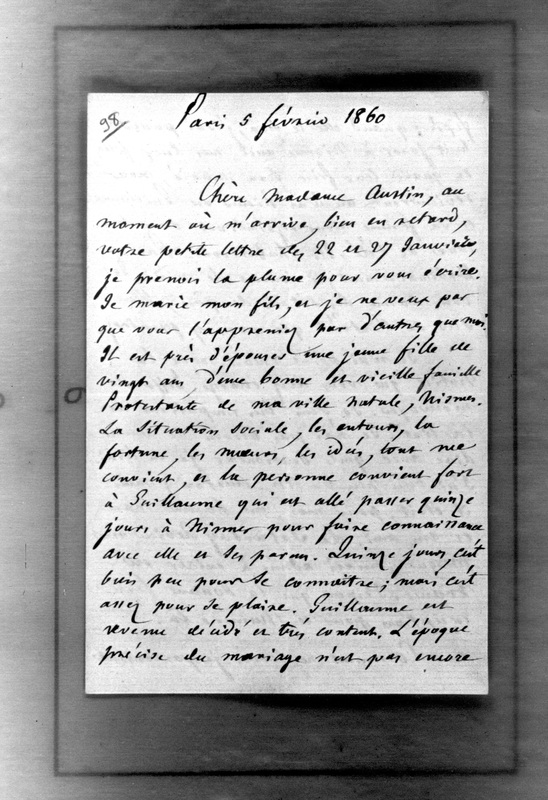 98
Paris 5 février 1860
Chère Madame Austin, au
moment où m'arrive, bien en retard,
votre petite lettre des 22 et 27 Janvier,
je prenois la plume pour vous écrire.
Je marie mon fils, et je ne veux pas
que vous l'appreniez par d'autres que moi.
Il est près d'épouser une jeune fille de
vingt ans d'une bonne et vieille famille
Protestante de ma ville natale, Nismes.
La situation sociale, les entours, la
fortune, les mœurs, les idées, tout me
convient, et la personne convient fort
à Guillaume qui est allé passer quinze
jours à Nismes pour faire connaissance
avec elle et ses parens. Quinze jours, c'est
bien peu pour se connoître ; mais c'est
assez pour se plaire. Guillaume est
revenu décidé et très content. L'époque
précise du mariage n'est pas encore